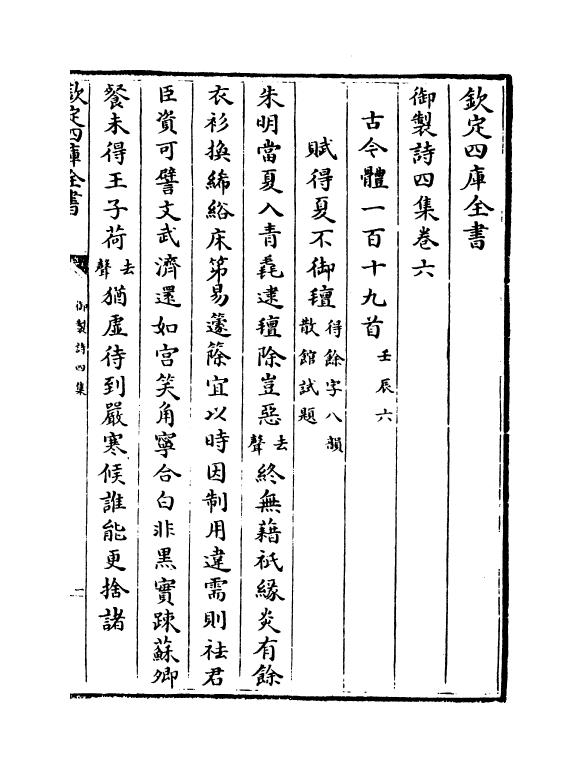 欽定四庫全書
御製詩四集卷六
古今體一百十九首壬辰六
賦得夏不御氊得餘字八韻散館試題
朱明當夏入青毳逮氊除豈惡去聲終無藉祇緣炎有餘
衣衫換絺綌床笫易籧篨宜以時因制用違需則祛君
臣資可譬文武濟還如宫笑角寧合白非黒實踈蘇卿
餐未得王子荷去聲猶虚待到嚴寒候誰能更捨諸
欽定四庫全書
御製詩四集